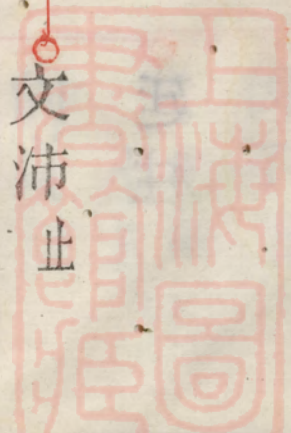 文沛止
上海圖
書館藏